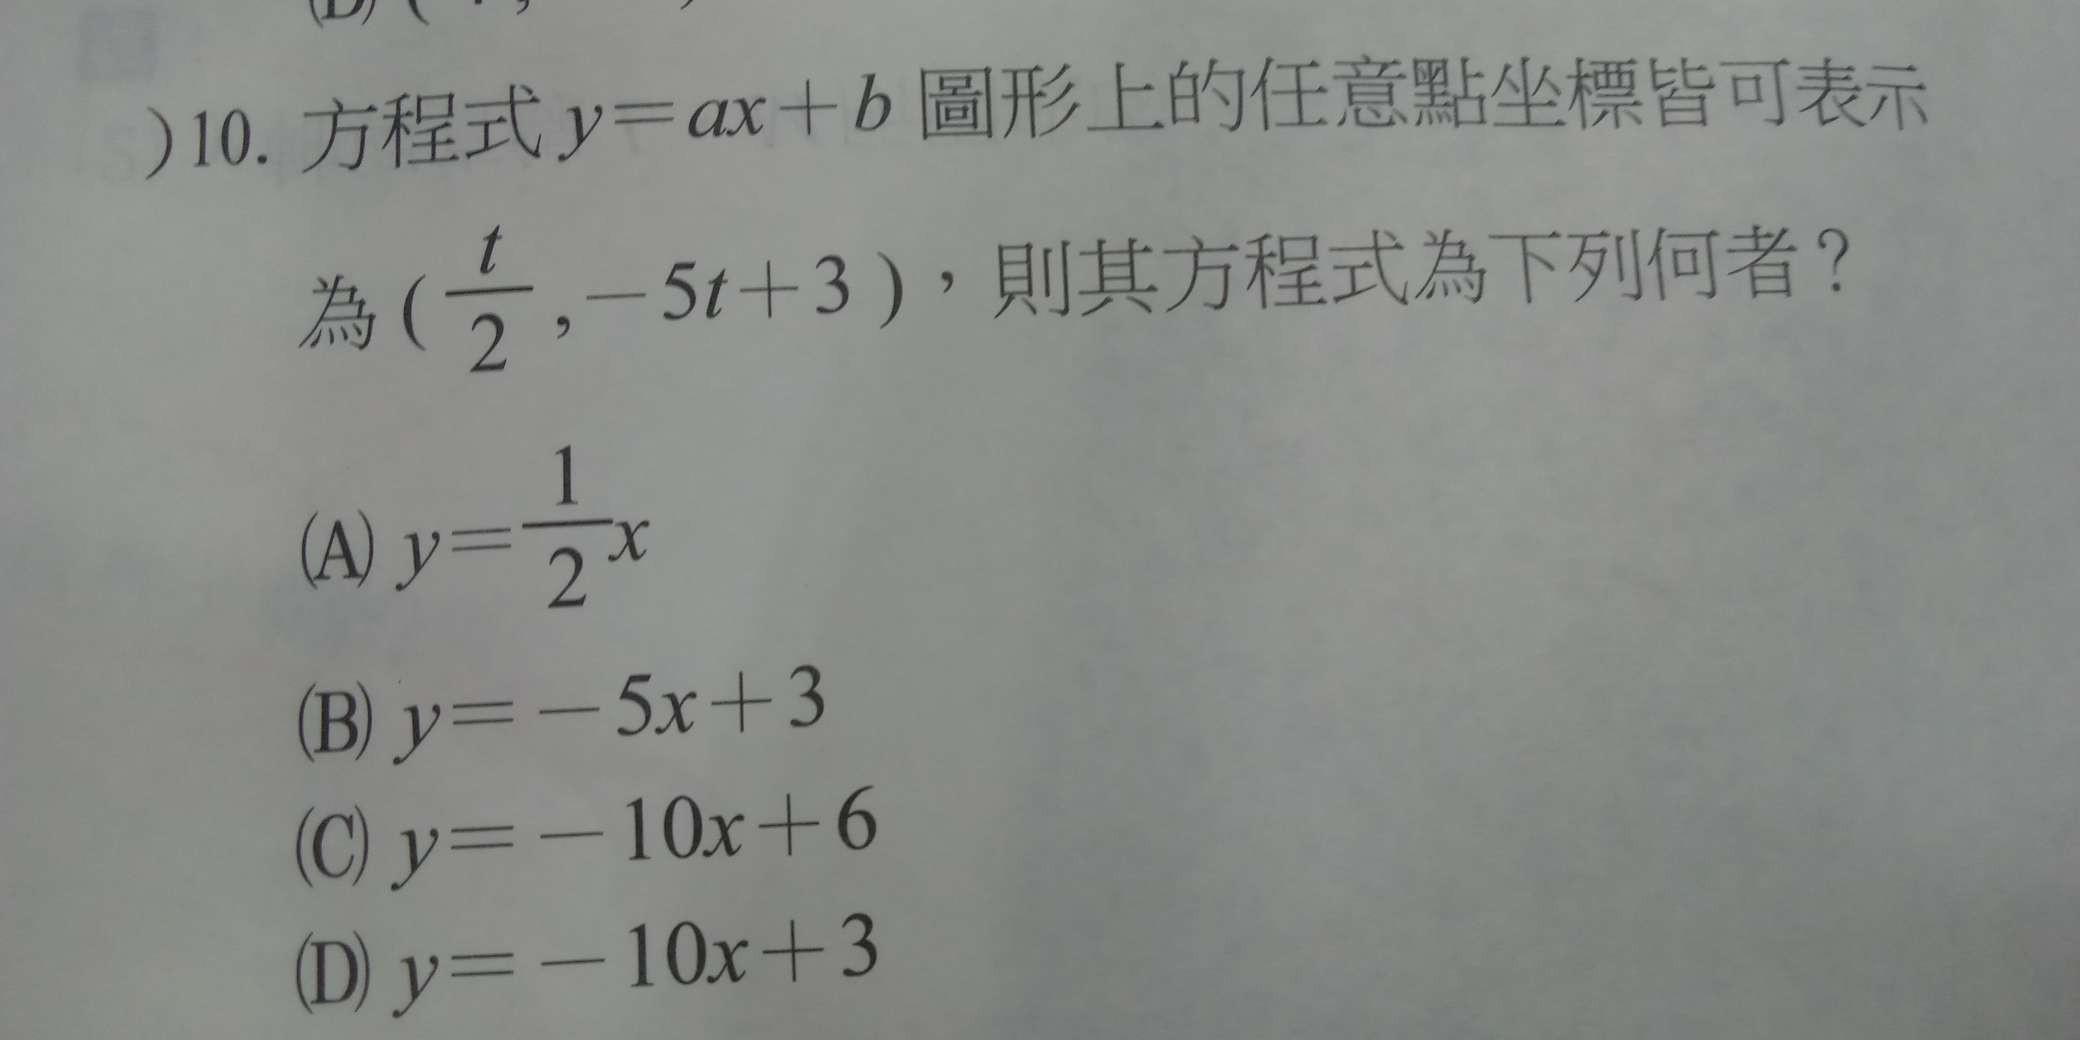 )10. 方程式 y=ax+b 圖形上的任意點坐標皆可表示
為 ( t/2 , -5t+3 )，則其方程式為下列何者？
(A) y=1/2x
(B) y=-5x+3
(C) y=-10x+6
(D) y=-10x+3